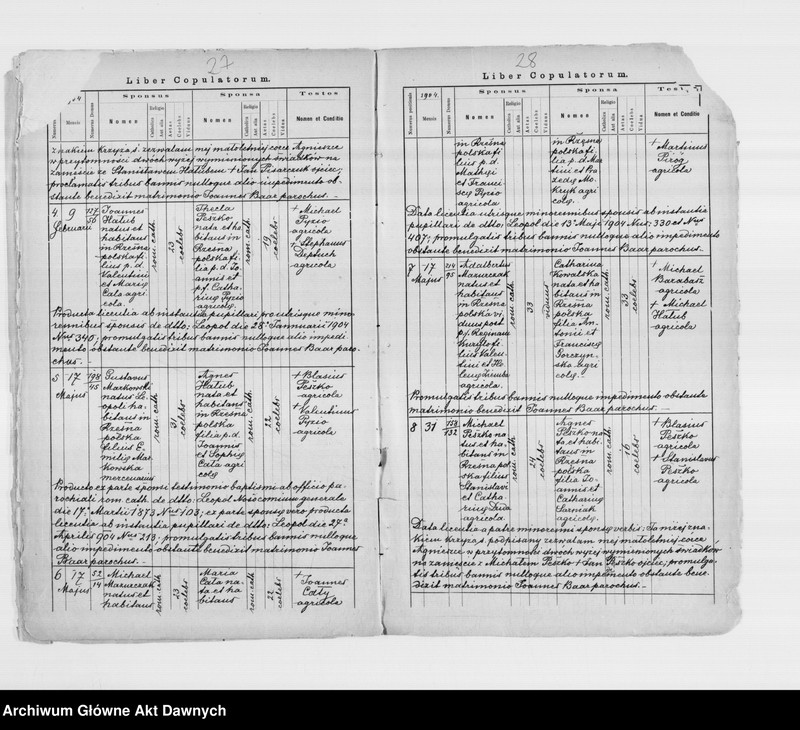 27
Liber Copulatorum.
Sponsus
Sponsa
Testes
Mensis
Numerus Domus
Nomen
Religio
Catholica
Aut alia
Aetas
Coelebs
Viduus
Nomen
Religio
Catholica
Aut alia
Aetas
Coelebs
Vidua
Nomen et Conditio
znakiem krzyża ś. zezwalam mej małoletniej córce Agnieszce
w przytomności dwóch wyżej wymienionych świadków na
zamęście ze Stanisławem Hałubem + Jan Pisarczuk ojciec;
proclamatis tribus bannis nulloque alio impedimento ob-
stante benedixit matrimonio Joannes Baar parochus. –
4
9
Februarii
127
56
Joannes
Hałub
natus et
habitans
in Rzesna
polska fi-
lius p. d.
Valentini
et Maria
Cała agri-
cola.
rom. cath.
23
coelebs
Thecla
Peszko
nata et ha
bitans in
Rzesna
polska fi-
lia p. d. Jo-
annis et
p. f. Catha-
rina Pyzio
agricolæ.
rom. cath.
19
coelebs
+ Michael
Pyzio
agricola
+ Stephanus
Deptuch
agricola
Producta licentia ab instantia pupillari pro utrisque mino-
rennibus sponsis de dtto: Leopol die 28a Januarii 1904
Nus 340; promulgatis tribus bannis nulloque alio impedi-
mento obstante benedixit matrimonio Joannes Baar paro-
chus. –
5
17
Majus
198
45
Gustavus
Markowski
natus Le-
opoli ha-
bitans in
Rzesna
polska
filius E-
milia Mar-
kowska
mercenarius
rom. cath.
31
coelebs
Agnes
Hałub
nata et
habitans
in Rzesna
polska
filia p. d.
Joannis
et Sophia
Cała agri
colæ
rom. cath.
22
coelebs
+ Blasius
Peszko
agricola
+ Valentinus
Pyzio
agricola
Producto ex parte sponsi testimonio baptismi ab officio pa-
rochiali rom. cath. de dtto: Leopol Nosocomium generale
die 17a Martii 1873 Nus 103; ex parte sponsa vero producta
licentia ab instantia pupillari de dtto: Leopol die 27a
Aprilis 904 Nus 213; promulgatis tribus bannis nulloque
alio impedimento obstante benedixit matrimonio Joannes
Baar parochus. –
6
17
Majus
52
14
Michael
Mazurczak
natus et
habitans
rom. cath.
23
coelebs
Maria
Cała na-
ta et ha
bitans
rom. cath.
22
coelebs
+
Joannes
Cały
agricola
28
Liber Copulatorum.
1904.
Sponsus
Sponsa
Numerus positionis
Mensis
Numerus Domus
Nomen
Religio
Catholica
Aut alia
Aetas
Coelebs
Viduus
Nomen
Religio
Catholica
Aut alia
Aetas
Coelebs
Vidua
Nomen et Conditio
in Rzesna
polska fi-
lius p. d.
Mathæi
et Franci
sca Pyzio
agricola
in Rzesna
polska fi-
lia p. d. Mar
tini et
Mo-
kryk agri
colæ.
+ Martinus
Piróg
agricola
Data licentia utrisque minorennibus sponsis ab instantia
pupillari de dtto: Leopol die 13a Maji 1904 Nus: 330 et Nus
407; promulgatis tribus bannis nulloque alio impedimento
obstante benedixit matrimonio Joannes Baar parochus. –
7
17
Majus
214
95
Adalbertus
Mazurczak
natus et
habitans
in Rzesna
polska vi
duus post
p. f. Reginam
filius Valen-
tini et He
lena
agricola.
rom. cath.
33
viduus
Catharina
Kowalska
nata et ha
bitans in
Rzesna
polska
filia An-
tonii et
Francisca
Gorczyn-
ska agri
colæ.
rom. cath.
33
coelebs
+ Michael
Barabasz
agricola
+ Michael
Hałub
agricola
Promulgatis tribus bannis nulloque impedimento obstante
matrimonio benedixit Joannes Baar parochus. –
8
31
159
132
Michael
Peszko na-
tus et ha-
bitans in
Rzesna pol-
ska filius
Stanislai
et Catha
rina
agricola.
rom. cath.
24
coelebs
Agnes
Peszko na
ta et habi-
tans in
Rzesna
polska
filia Jo-
annis et
Catharina
Sarniak
agricolæ.
rom. cath.
16
coelebs
+ Blasius
Peszko
agricola
+ Stanislaus
Peszko
agricola
Data licentia a patre minorennis sponsa verbis: Ja niżej zna-
kiem krzyża ś. podpisany zezwalam mej małoletniej córce
Agnieszce w przytomności dwóch wyżej wymienionych świadków
na zamęście z Michałem Peszko + Jan Peszko ojciec; promulga-
tis tribus bannis nulloque alio impimento obstante bene-
dixit matrimonio Joannes Baar parochus. –
Archiwum Główne Akt Dawnych